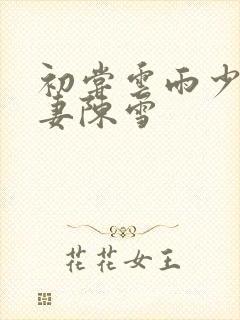 初尝雲雨少
妻陳雪
花花女王